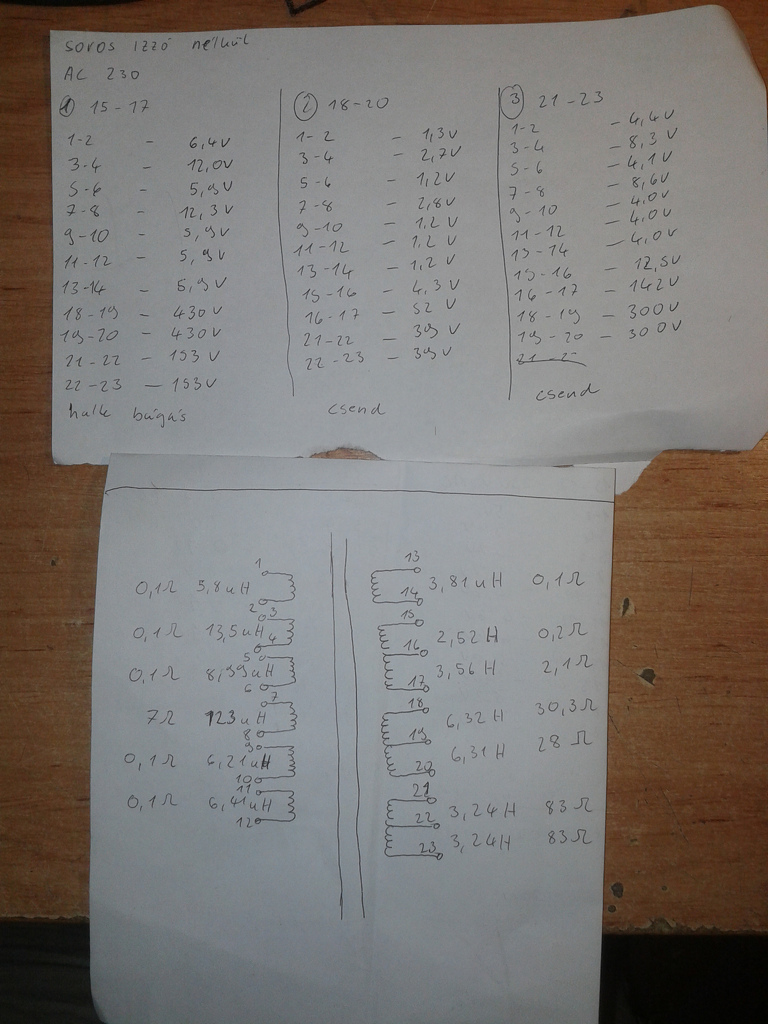 SOROS IZZÓ nélkül
AC 230
① 15-17
1-2 - 6,4V
3-4 - 12,0V
5-6 - 5,9V
7-8 - 12,3V
9-10 - 5,9V
11-12 - 5,9V
13-14 - 5,9V
18-19 - 430V
19-20 - 430V
21-22 - 153V
22-23 - 153V
halk búgás
② 18-20
1-2 - 1,3V
3-4 - 2,7V
5-6 - 1,2V
7-8 - 2,8V
9-10 - 1,2V
11-12 - 1,2V
13-14 - 1,2V
15-16 - 4,3V
16-17 - 52V
21-22 - 39V
22-23 - 39V
csend
③ 21-23
1-2 - 4,4V
3-4 - 8,3V
5-6 - 4,1V
7-8 - 8,6V
9-10 - 4,0V
11-12 - 4,0V
13-14 - 4,0V
15-16 - 12,5V
16-17 - 142V
18-19 - 300V
19-20 - 300V
csend
1
0,1Ω 5,8uH
2
3
0,1Ω 13,5uH
4
5
0,1Ω 8,99uH
6
7
7Ω 123uH
8
9
0,1Ω 6,21uH
10
11
0,1Ω 6,41uH
12
13
3,81uH 0,1Ω
14
15
2,52H 0,2Ω
16
3,56H 2,1Ω
17
18
6,32H 30,3Ω
19
6,31H 28Ω
20
21
3,24H 83Ω
22
3,24H 83Ω
23